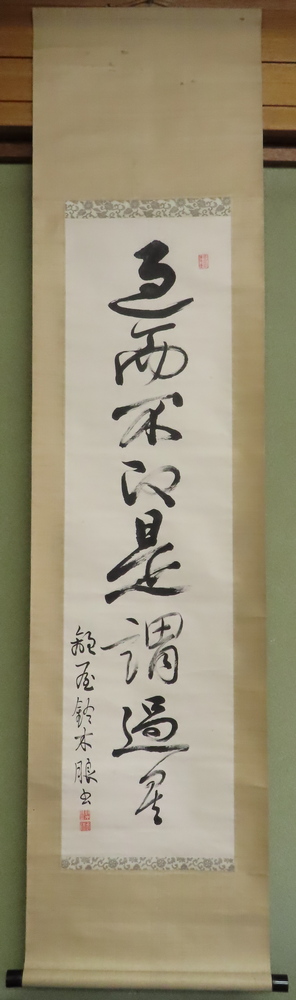 過而不改是謂過矣
鈴木朖書